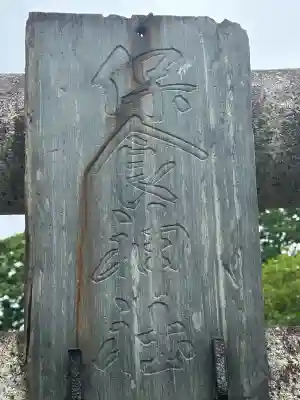 保食神社